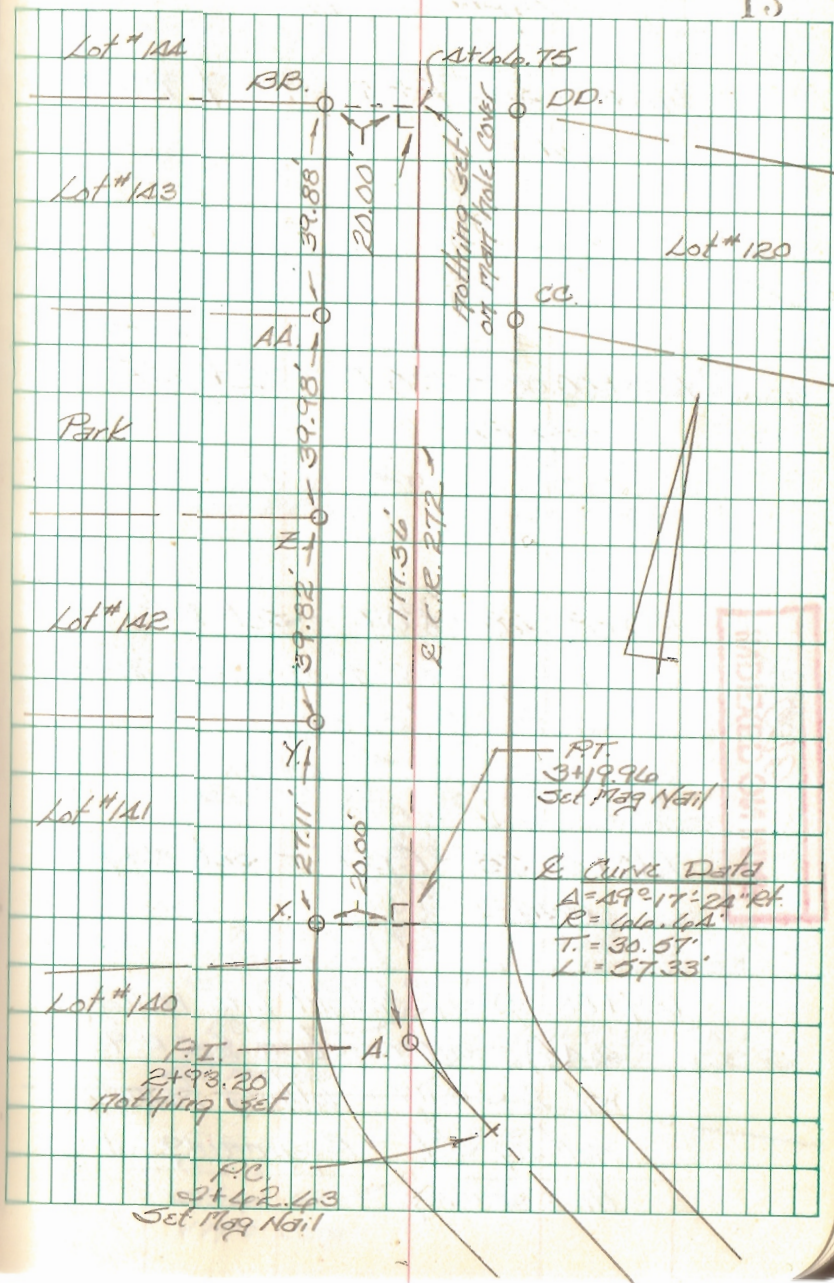 Lot #144
4+66.75
BB.
DD.
Lot #143
39.88'
20.00'
nothing set
on man hole cover
Lot #120
CC.
AA.
39.98'
Park
Z
177.36'
℄ C.R. 272
39.82'
Lot #142
Y.
P.T.
3+19.96
Set Mag Nail
Lot #141
27.11'
20.00'
X.
℄ Curve Data
Δ=49°-17'-24" Rt.
R=66.64'
T.=30.57'
L.=57.33'
Lot #140
P.I.
A.
2+93.20
nothing set
P.C.
2+62.63
Set Mag Nail